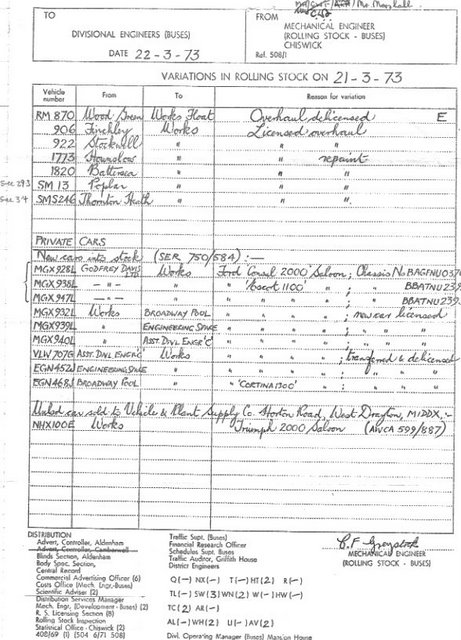 Mr. Marshall
TO
DIVISIONAL ENGINEERS (BUSES)
DATE 22-3-73
FROM
MECHANICAL ENGINEER
(ROLLING STOCK - BUSES)
CHISWICK
Ref. 508/1
VARIATIONS IN ROLLING STOCK ON 21-3-73
Vehicle number From To Reason for variation
RM 870 Wood Green Works Float Overhaul delicensed E
906 Finchley Works Licensed overhaul
922 Stockwell " " "
1773 Hounslow " " repaint
1820 Battersea " " "
See 293 SM 13 Poplar " " "
See 34 SMS246 Thornton Heath " " "
PRIVATE CARS
New cars into stock (SER 750/584) :—
MGX928L GODFREY DAVIS LTD. Works Ford 'Consul 2000' Saloon; Chassis No BAGFNU
MGX938L — " — " " 'Escort 1100' " ; " BBATNU239
MGX947L — " — " " " " ; " BBATNU239
MGX932L Works BROADWAY POOL " " " ; new car licensed
MGX939L " ENGINEERING SPARE " " " ; " " "
MGX940L " ASST. DIVL ENGR 'C' " " " ; " " "
VLW 707G ASST. DIVL ENGR 'C' Works " " " ; transferred & delicensed
EGN452J ENGINEERING SPARE " " " " ; " " "
EGN468J BROADWAY POOL " " 'CORTINA 1300' " ; " " "
Unlicd. car sold to Vehicle & Plant Supply Co. Horton Road, West Drayton, MIDDX :-
NHX100E Works Triumph 2000 Saloon (AWCA 599/887)
DISTRIBUTION
Advert. Controller, Aldenham
Advert. Controller, Camberwell
Blinds Section, Aldenham
Body Spec. Section,
Central Record
Commercial Advertising Officer (6)
Costs Office (Mech. Engr.-Buses)
Scientific Adviser (2)
Distribution Services Manager
Mech. Engr. (Development - Buses) (2)
R. S. Licensing Section (8)
Rolling Stock Inspector
Statistical Office - Chiswick (2)
408/69 (1) (504 6/71 508)
Traffic Supt. (Buses)
Financial Research Officer
Schedules Supt. Buses
Traffic Auditor, Griffith House
District Engineers
Q(—) NX(—) T(—) HT(2) R(—)
TL(—) SW(3) WN(2) W(—) HW(—)
TC(2) AR(—)
AL(—) WH(2) U(—) AV(2)
Divl. Operating Manager (Buses) Mansion House
MECHANICAL ENGINEER
(ROLLING STOCK - BUSES)